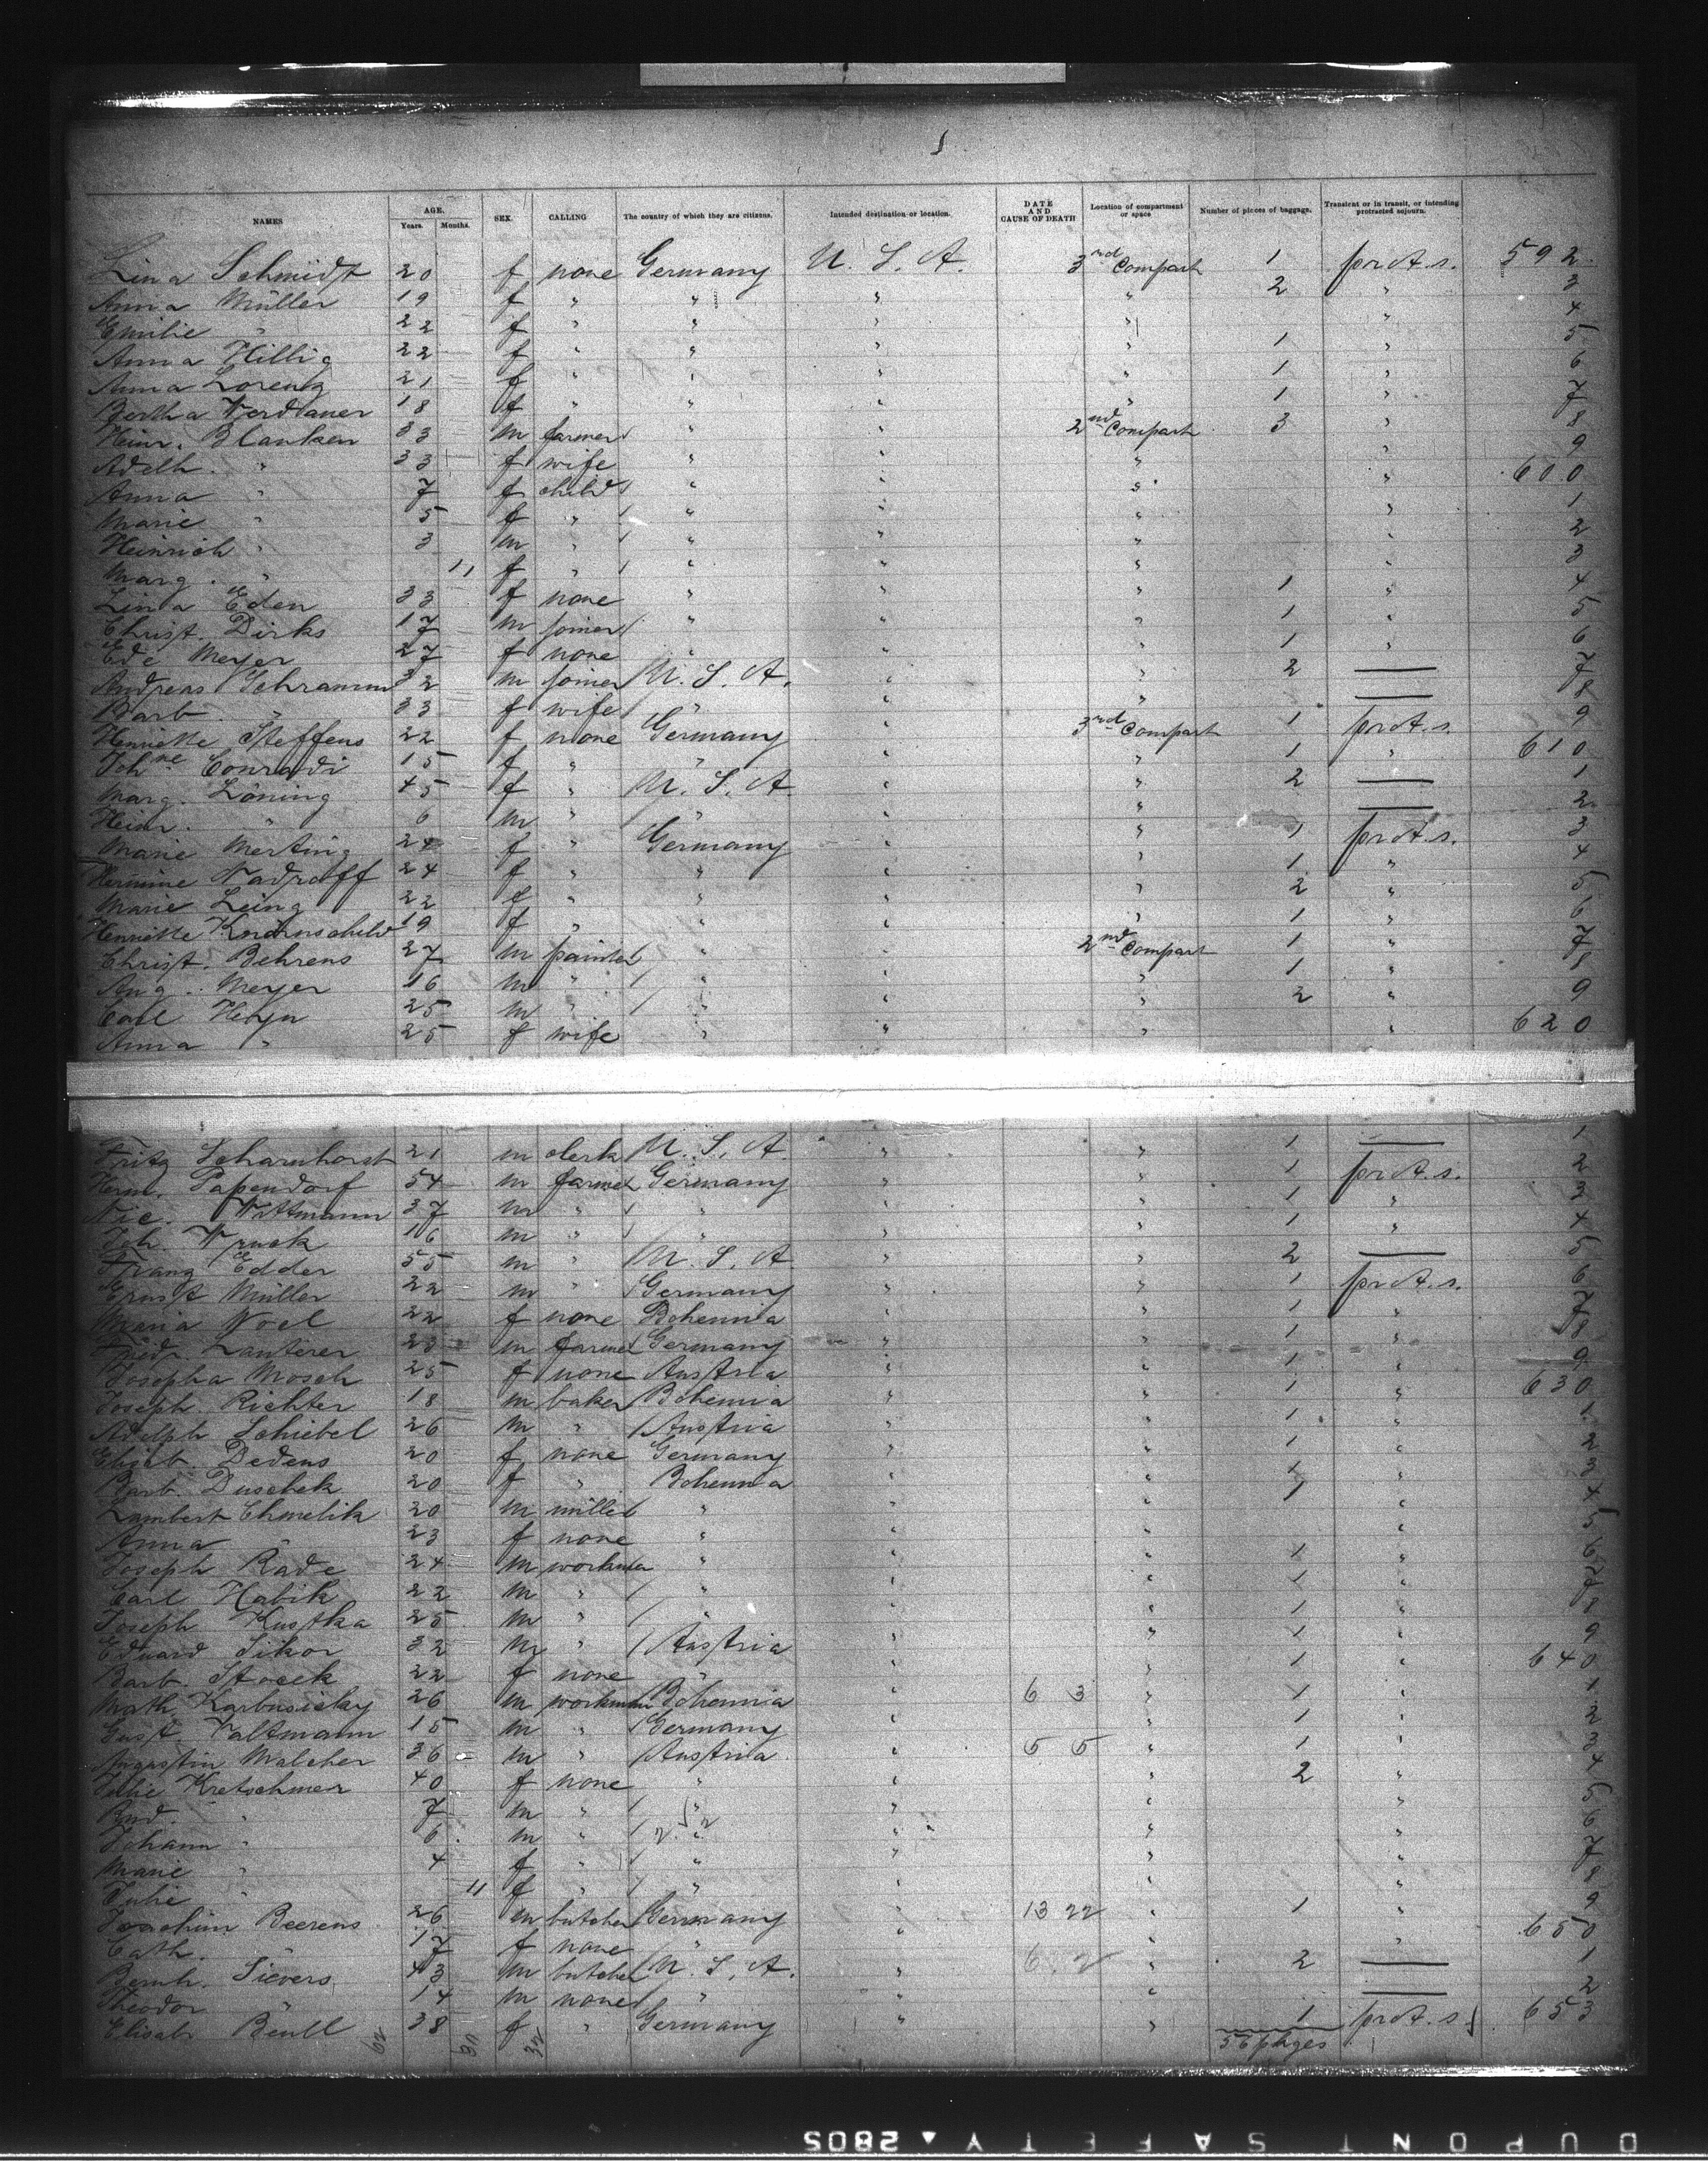 NAMES AGE. Years. Months. SEX. CALLING The country of which they are citizens. Intended destination or location. DATE AND CAUSE OF DEATH Location of compartment or space Number of pieces of baggage. Transient or in transit, or intending protracted sojourn.
Lina Schmidt 20 f none Germany U. S. A. 3rd Compart 1 prot. s. 592
Anna Müller 19 f " " " " 2 " 3
Emilie " 22 f " " " " " 4
Anna Hillig 22 f " " " " 1 " 5
Anna Lorentz 21 f " " " " 1 " 6
Bertha Verdauer 18 f " " " " 1 " 7
Heinr. Blanken 33 m farmer " " 2nd Compart 3 " 8
Adelh. " 33 f wife " " " " 9
Anna " 7 f child " " " " 600
Marie " 5 f " " " " " 1
Heinrich " 3 m " " " " " 2
Marg. " 11 f " " " " " 3
Lina Eden 33 f none " " " 1 " 4
Christ. Dirks 17 m joiner " " " 1 " 5
Ede Meyer 27 f none " " " 1 " 6
Andreas Schramm 32 m joiner U. S. A. " " 2 — 7
Barb. " 33 f wife " " " — 8
Henriette Steffens 22 f none Germany " 3rd Compart 1 prot. s. 9
Joh.ne Conradi 15 f " " " " 1 " 610
Marg. Löning 45 f " U. S. A. " " 2 — 1
Heinr. " 6 m " " " " — 2
Marie Merting 24 f " Germany " " 1 prot. s. 3
Hermine Nadroff 24 f " " " " 1 " 4
Marie Leing 22 f " " " " 2 " 5
Henriette Knörnschild 19 f " " " " 1 " 6
Christ. Behrens 27 m painter " " 2nd Compart 1 " 7
Aug. Meyer 16 m " " " " 1 " 8
Carl Heyn 25 m " " " " 2 " 9
Anna " 25 f wife " " " " 620
Fritz Scharnhorst 21 m clerk U. S. A. " " 1 — 1
Herm. Papendorf 54 m farmer Germany " " 1 prot. s. 2
Nic. Wittmann 37 m " " " " 1 " 3
Joh. Wruck 16 m " " " " 1 " 4
Franz Edder 55 m " U. S. A " " 2 — 5
Ernst Müller 22 m " Germany " " 1 prot. s. 6
Maria Noel 22 f none Bohemia " " 1 " 7
Friedr. Lanterer 23 m farmer Germany " " 1 " 8
Josepha Mosch 25 f none Austria " " 1 " 9
Joseph Richter 18 m baker Bohemia " " 1 " 630
Adolph Schiebel 26 m " Austria " " 1 " 1
Elisab. Dedens 20 f none Germany " " 1 " 2
Barb. Duschek 20 f " Bohemia " " 1 " 3
Lambert Chmelik 30 m miller " " " 1 " 4
Anna " 23 f none " " " " 5
Joseph Rade 24 m workman " " " 1 " 6
Carl Habik 22 m " " " " 1 " 7
Joseph Kustka 25 m " " " " 1 " 8
Eduard Sikor 32 m " Austria " " 1 " 9
Barb. Stocek 22 f none " " " 1 " 640
Math. Karbusicky 26 m workman Bohemia " 6 3 " 1 " 1
Gust. Valtmann 15 m " Germany " " 1 " 2
Augustin Malcher 36 m " Austria " 5 5 " 1 " 3
Julie Kretschmer 40 f none " " " 2 " 4
Rud. " 7 m " " " " " 5
Johann " 6 m " " " " " 6
Marie " 4 f " " " " " 7
Julie " 11 f " " " " " 8
Joachim Beerens 26 m butcher Germany " 13 22 " 1 " 9
Cath. " 17 f none " " " " 650
Bernh. Sievers 43 m butcher U. S. A. " 6 2 " 2 — 1
Theodor " 14 m none " " " — 2
Elisab. Beull 38 f " Germany " " 1 prot. s. 653
62 30 32 56 pkges
DUPONT SAFETY ▲ 2805